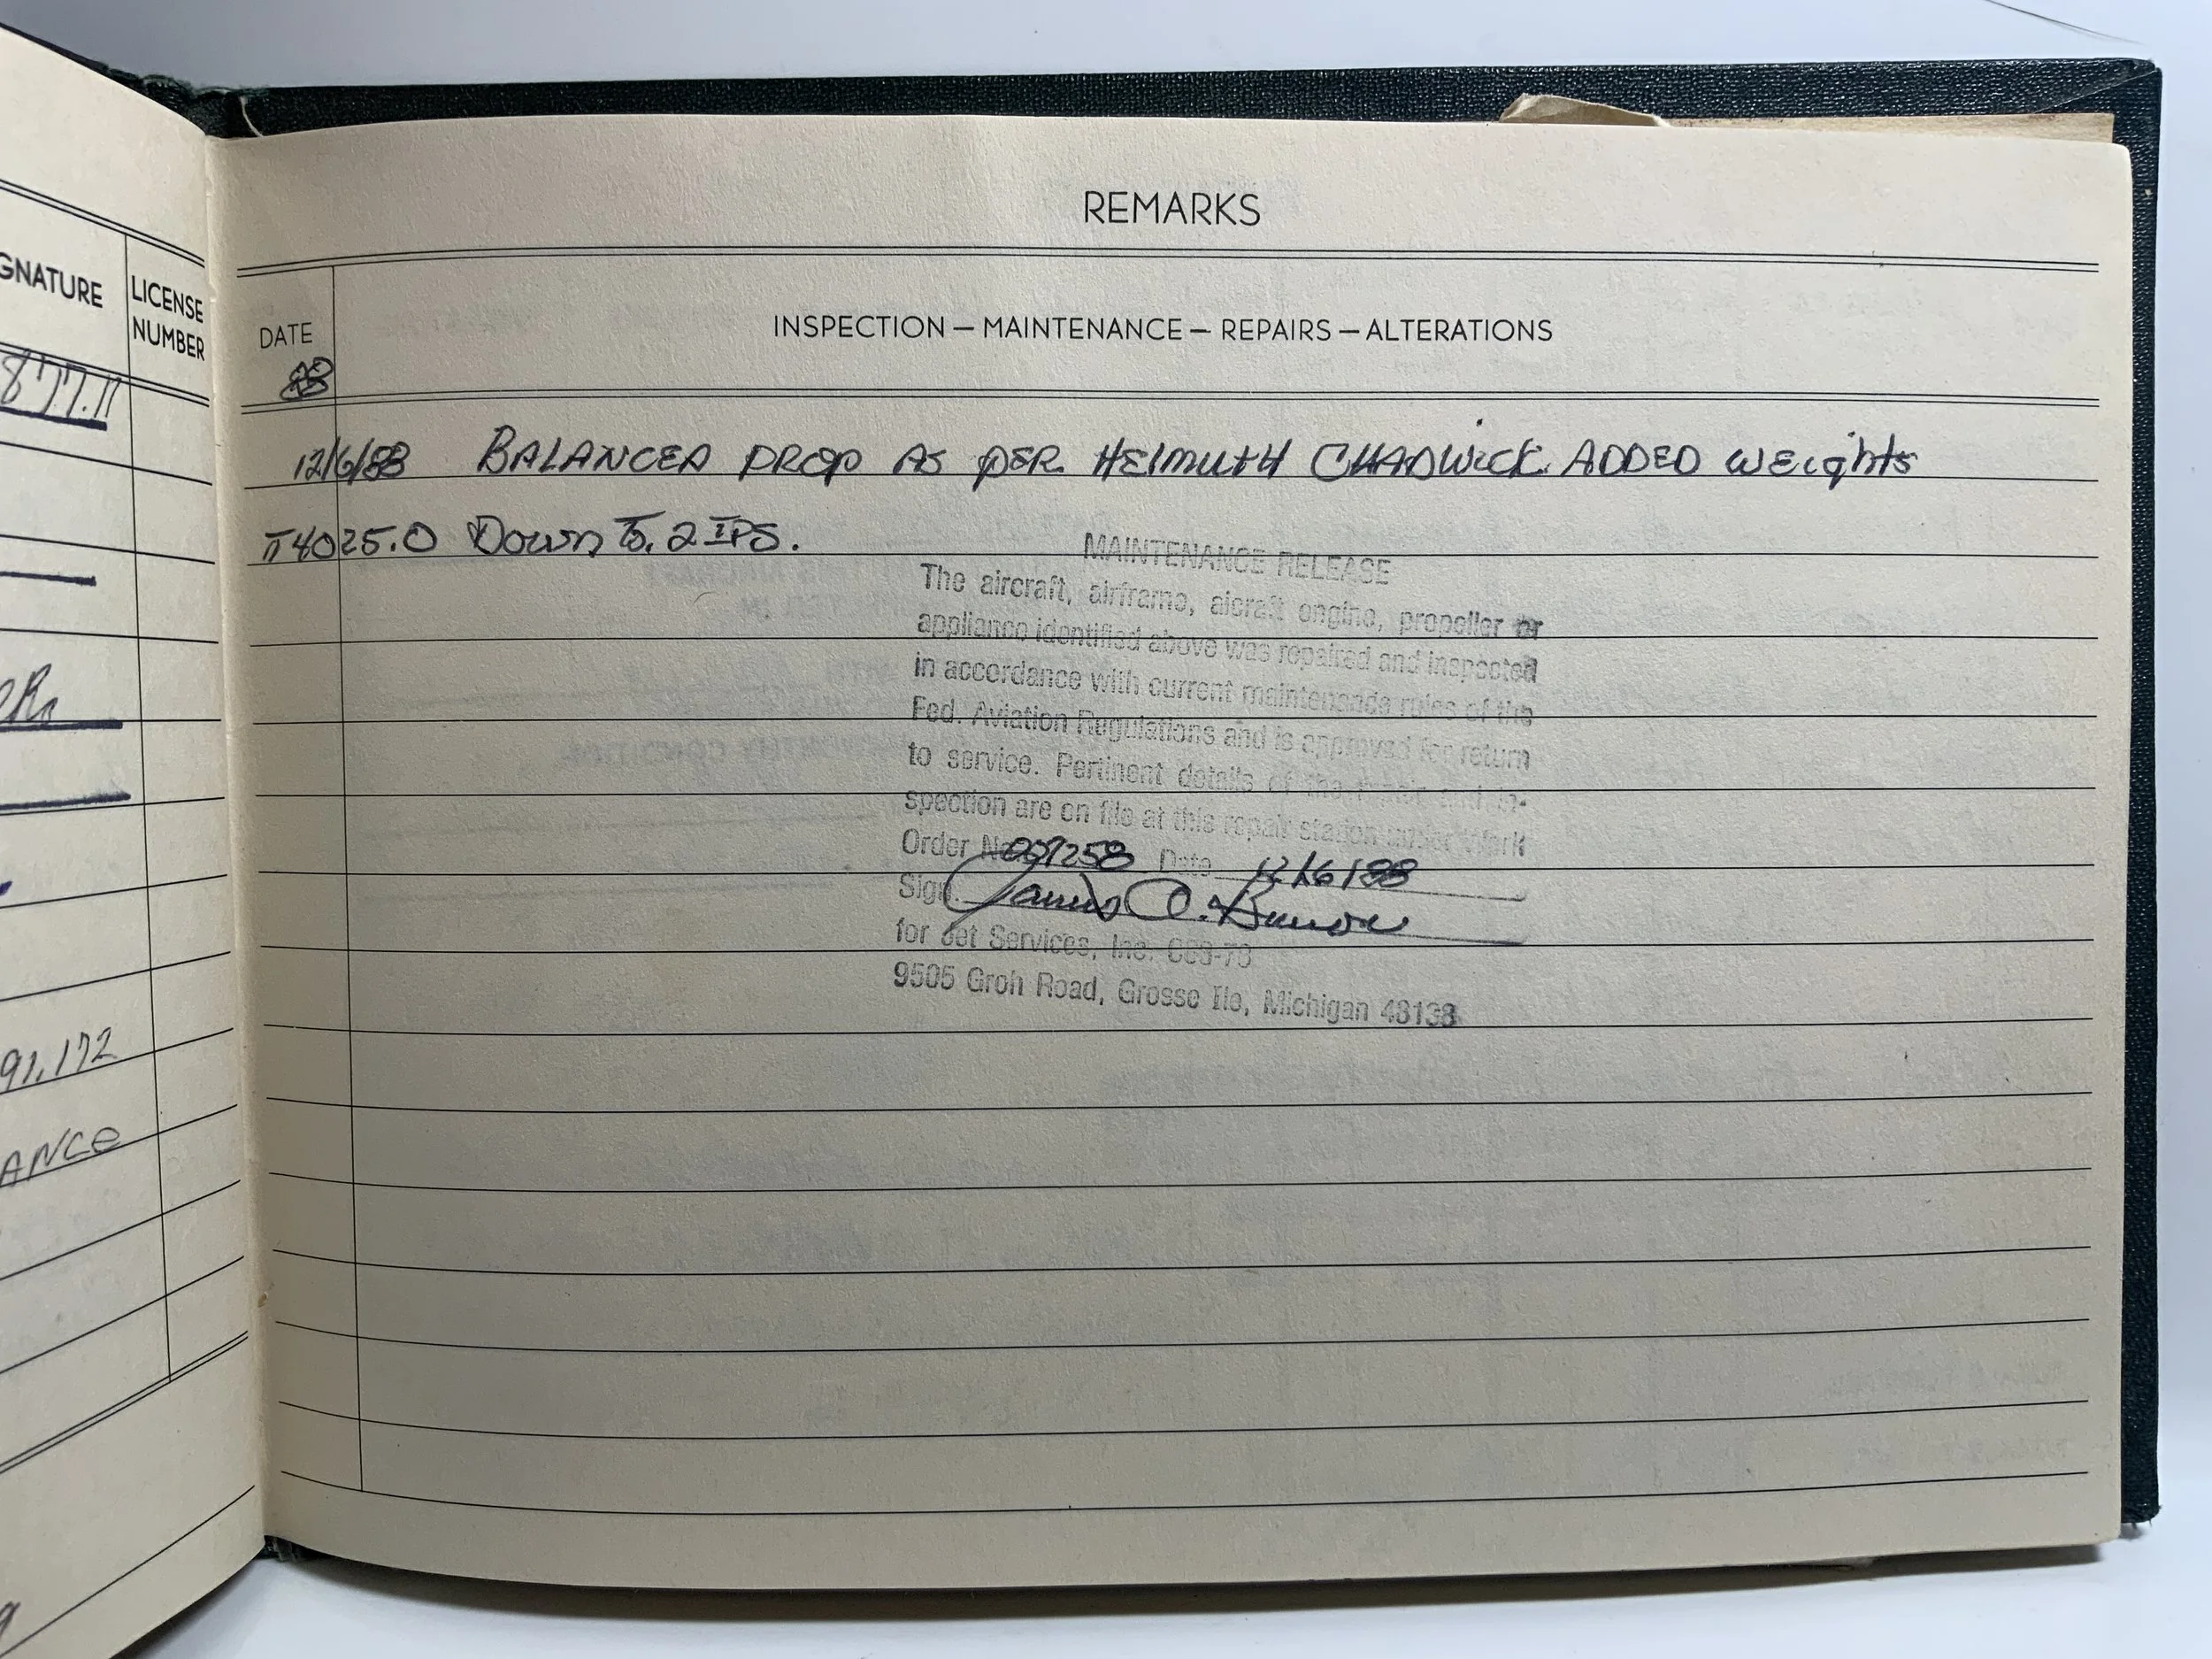 GNATURE
LICENSE
NUMBER
877.11
91.172
ANCE
REMARKS
DATE
88
INSPECTION — MAINTENANCE — REPAIRS — ALTERATIONS
12/6/88 BALANCED PROP AS PER HELMUTH CHADWICK ADDED WEIGHTS
TT4025.0 Down To .2 IPS.
MAINTENANCE RELEASE
The aircraft, airframe, aicraft engine, propeller or
appliance identified above was repaired and inspected
in accordance with current maintenance rules of the
Fed. Aviation Regulations and is approved for return
to service. Pertinent details of the repair and in-
spection are on file at this repair station under Work
Order No. 007258 Date 12/6/88
Sign James O.
for Jet Services, Inc.
9505 Groh Road, Grosse Ile, Michigan 48138